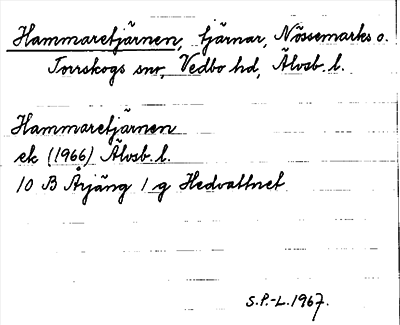 Hammaretjärnen, tjärnar, Nössemarks o.
Torrskogs snr, Vedbo hd, Älvsb. l.
Hammaretjärnen
ek (1966) Älvsb. l.
10 B Årjäng 1 g Hedvattnet
S.P.-L. 1967.